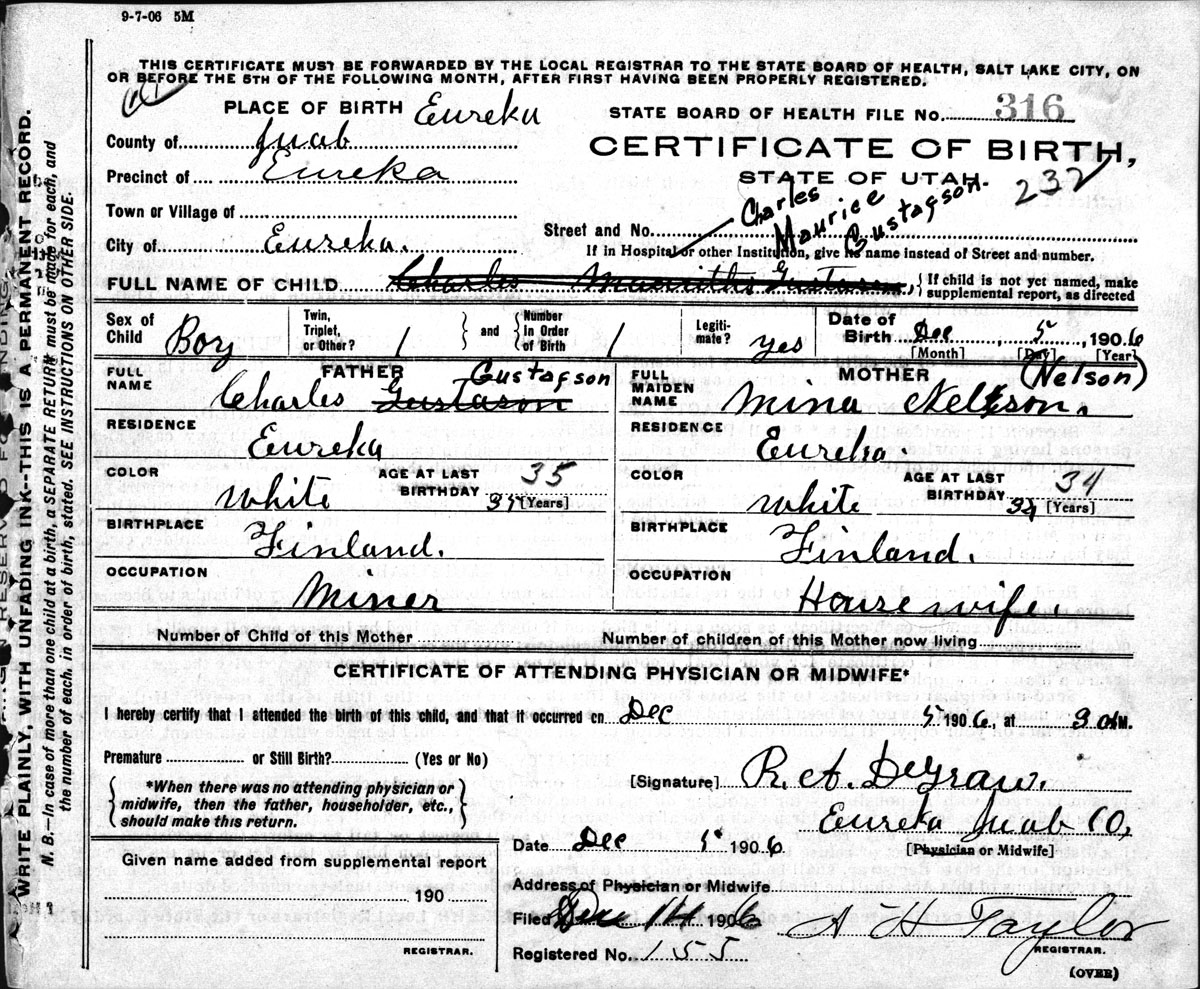 9-7-06 5M
THIS CERTIFICATE MUST BE FORWARDED BY THE LOCAL REGISTRAR TO THE STATE BOARD OF HEALTH, SALT LAKE CITY, ON
OR BEFORE THE 5TH OF THE FOLLOWING MONTH, AFTER FIRST HAVING BEEN PROPERLY REGISTERED.
PLACE OF BIRTH Eureka
STATE BOARD OF HEALTH FILE No. 316
County of Juab
CERTIFICATE OF BIRTH,
Precinct of Eureka
STATE OF UTAH.
232
Town or Village of
Charles
Maurice
Gustafson
Street and No.
City of Eureka.
If in Hospital or other Institution, give its name instead of Street and number.
FULL NAME OF CHILD Charles Gustason
If child is not yet named, make
supplemental report, as directed
Sex of Child Boy
Twin, Triplet, or Other? 1
and Number in Order of Birth 1
Legiti- mate? yes
Date of Birth Dec 5, 1906
[Month] [Day] [Year]
FATHER
FULL NAME Charles Gustason Gustafson
MOTHER
FULL MAIDEN NAME Mina Nelson. (Nelson)
RESIDENCE Eureka
RESIDENCE Eureka.
COLOR White
AGE AT LAST BIRTHDAY 35 [Years]
COLOR White
AGE AT LAST BIRTHDAY 34 [Years]
BIRTHPLACE Finland.
BIRTHPLACE Finland.
OCCUPATION Miner
OCCUPATION House wife.
Number of Child of this Mother
Number of children of this Mother now living
CERTIFICATE OF ATTENDING PHYSICIAN OR MIDWIFE*
I hereby certify that I attended the birth of this child, and that it occurred on Dec 5 1906, at 9 M.
Premature or Still Birth? (Yes or No)
*When there was no attending physician or
midwife, then the father, householder, etc.,
should make this return.
[Signature] R. A. DeGraw.
Eureka Juab Co,
Date Dec 5 1906
[Physician or Midwife]
Given name added from supplemental report
190
REGISTRAR.
Address of Physician or Midwife
Filed Dec 14 1906 A H Taylor
REGISTRAR.
Registered No. 155
(OVER)
WRITE PLAINLY, WITH UNFADING INK--THIS IS A PERMANENT RECORD.
N. B.—In case of more than one child at a birth, a SEPARATE RETURN must be made for each, and
the number of each, in order of birth, stated. SEE INSTRUCTIONS ON OTHER SIDE.